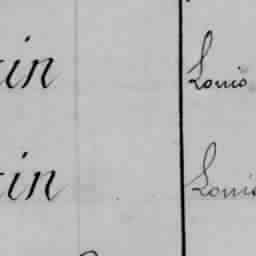 in Louis
in Louis